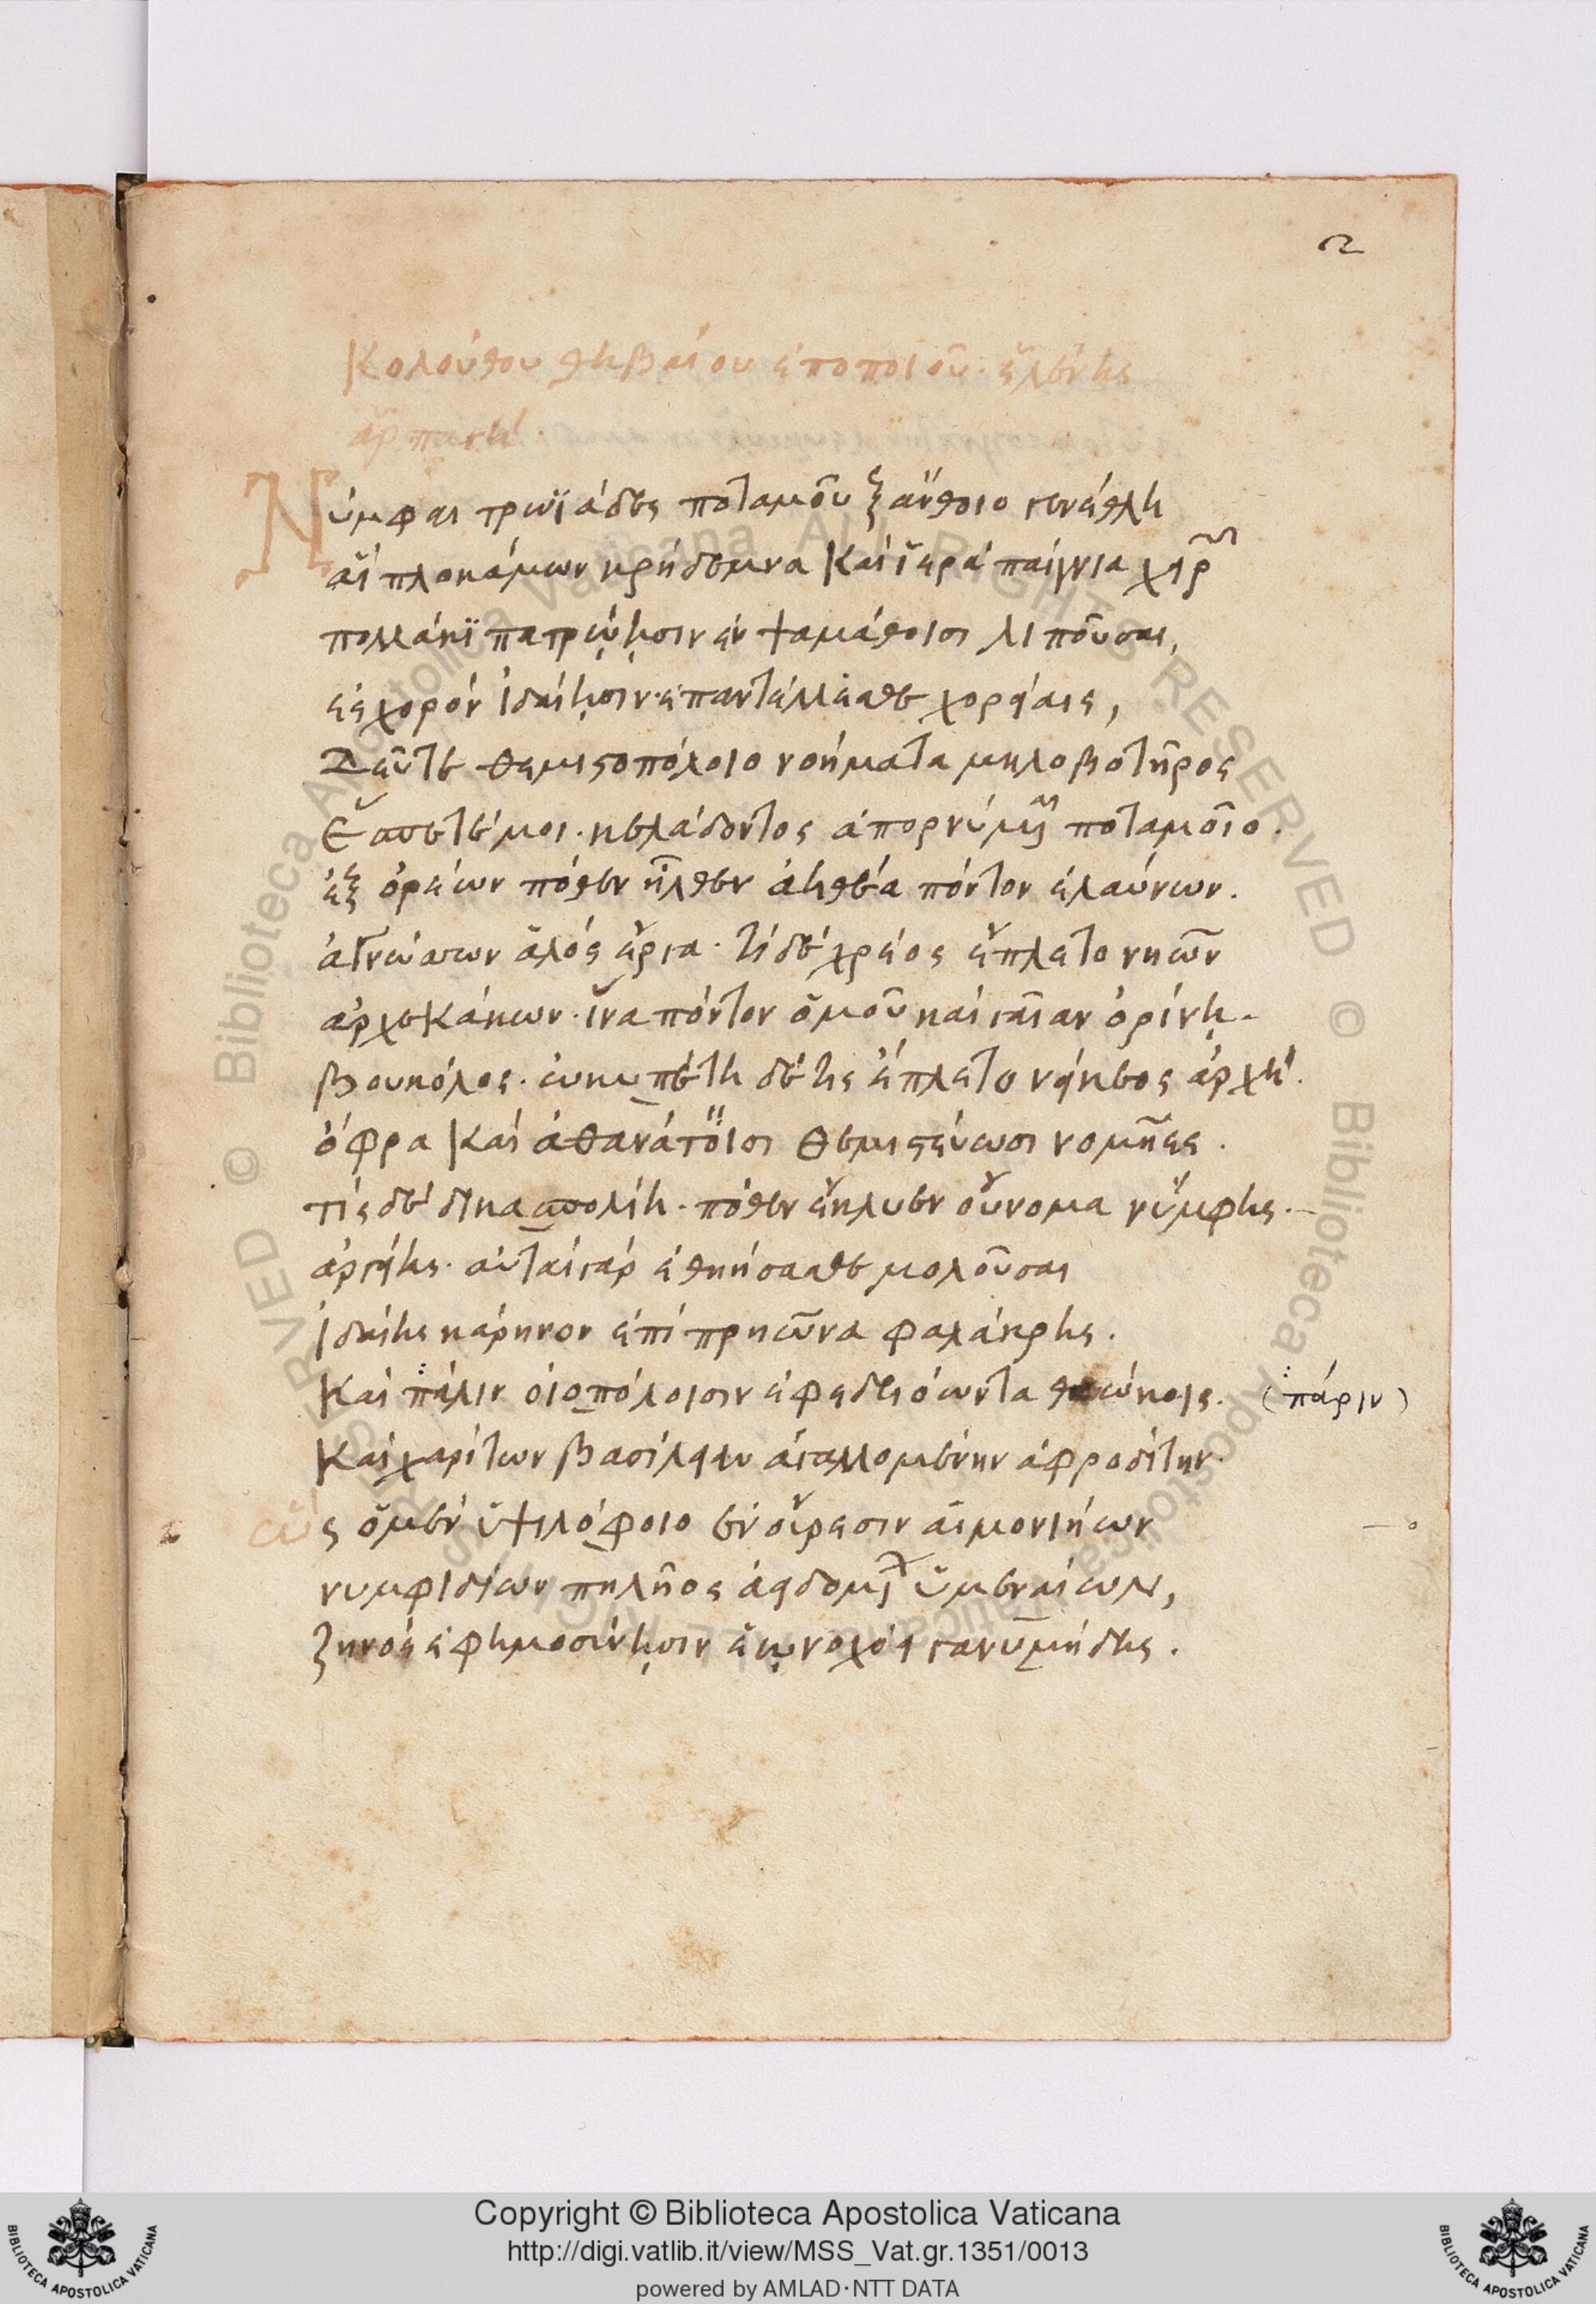 2
Κολούθου θηβαίου ἐποποιοῦ. ἑλένης
ἁρπαγή.
Νύμφαι τρωϊάδες ποταμοῦ ξάνθοιο γενέθλη
αἳ πλοκάμων κρήδεμνα καὶ ἱερὰ παίγνια χειρῶν
πολλάκϊ πατρῴῃσιν ἐν ψαμάθοισι λιποῦσαι,
ἐς χορὸν ἰδαίῃσιν ἐπαντέλλεσθε χορείαις,
Δεῦτε θεμιστοπόλοιο νοήματα μηλοβοτῆρος
ἔσπετέ μοι. κελάδοντος ἀπορνύμεναι ποταμοῖο.
ἐξ ὀρέων πόθεν ἦλθεν ἀήθεα πόντον ἐλαύνων.
ἀγνώσων ἁλὸς ἔργα. τί δὲ χρέος ἔπλετο νηῶν
ἀρχεκάκων. ἵνα πόντον ὁμοῦ καὶ γαῖαν ὀρίνῃ.
βουκόλος. ὠκυπέτη δέ τις ἔπλετο νείκεος ἀρχή.
ὄφρα καὶ ἀθανάτοισι θεμιστεύωσι νομῆες.
τίς δὲ δικασπολίη. πόθεν ἔκλυεν οὔνομα νύμφης.
ἀργείης. αὐταὶ γὰρ ἐθηήσασθε μολοῦσαι
ἰδαίης κάρηνον ἐπὶ πρηῶνα φαλάκρης.
καὶ πάλιν οἰοπόλοισιν ἐφεδριόωντα θοώκοις. (πάριν)
καὶ χαρίτων βασίλειαν ἀγαλλομένην ἀφροδίτην.
ὣς ὁ μὲν ὑψιλόφοιο ἐν οὔρεσιν αἱμονιήων
νυμφιδίων πηλῆος ἀειδομένων ὑμεναίων,
ζηνὸς ἐφημοσύνῃσιν ἐῳνοχόει γανυμήδης.
Copyright © Biblioteca Apostolica Vaticana
http://digi.vatlib.it/view/MSS_Vat.gr.1351/0013
powered by AMLAD·NTT DATA